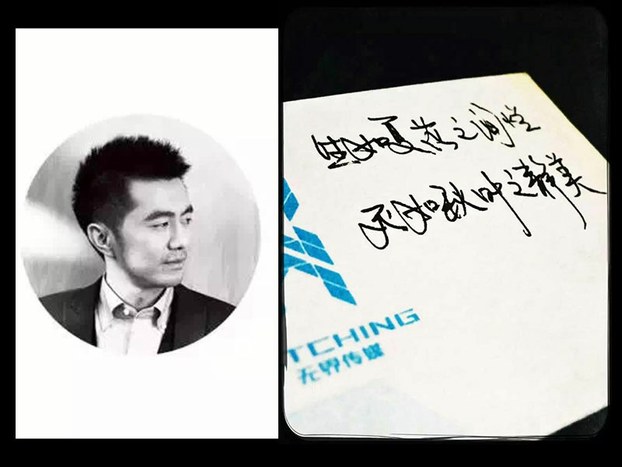 生如夏花之
死如秋叶之静美
TCHING
无界传媒